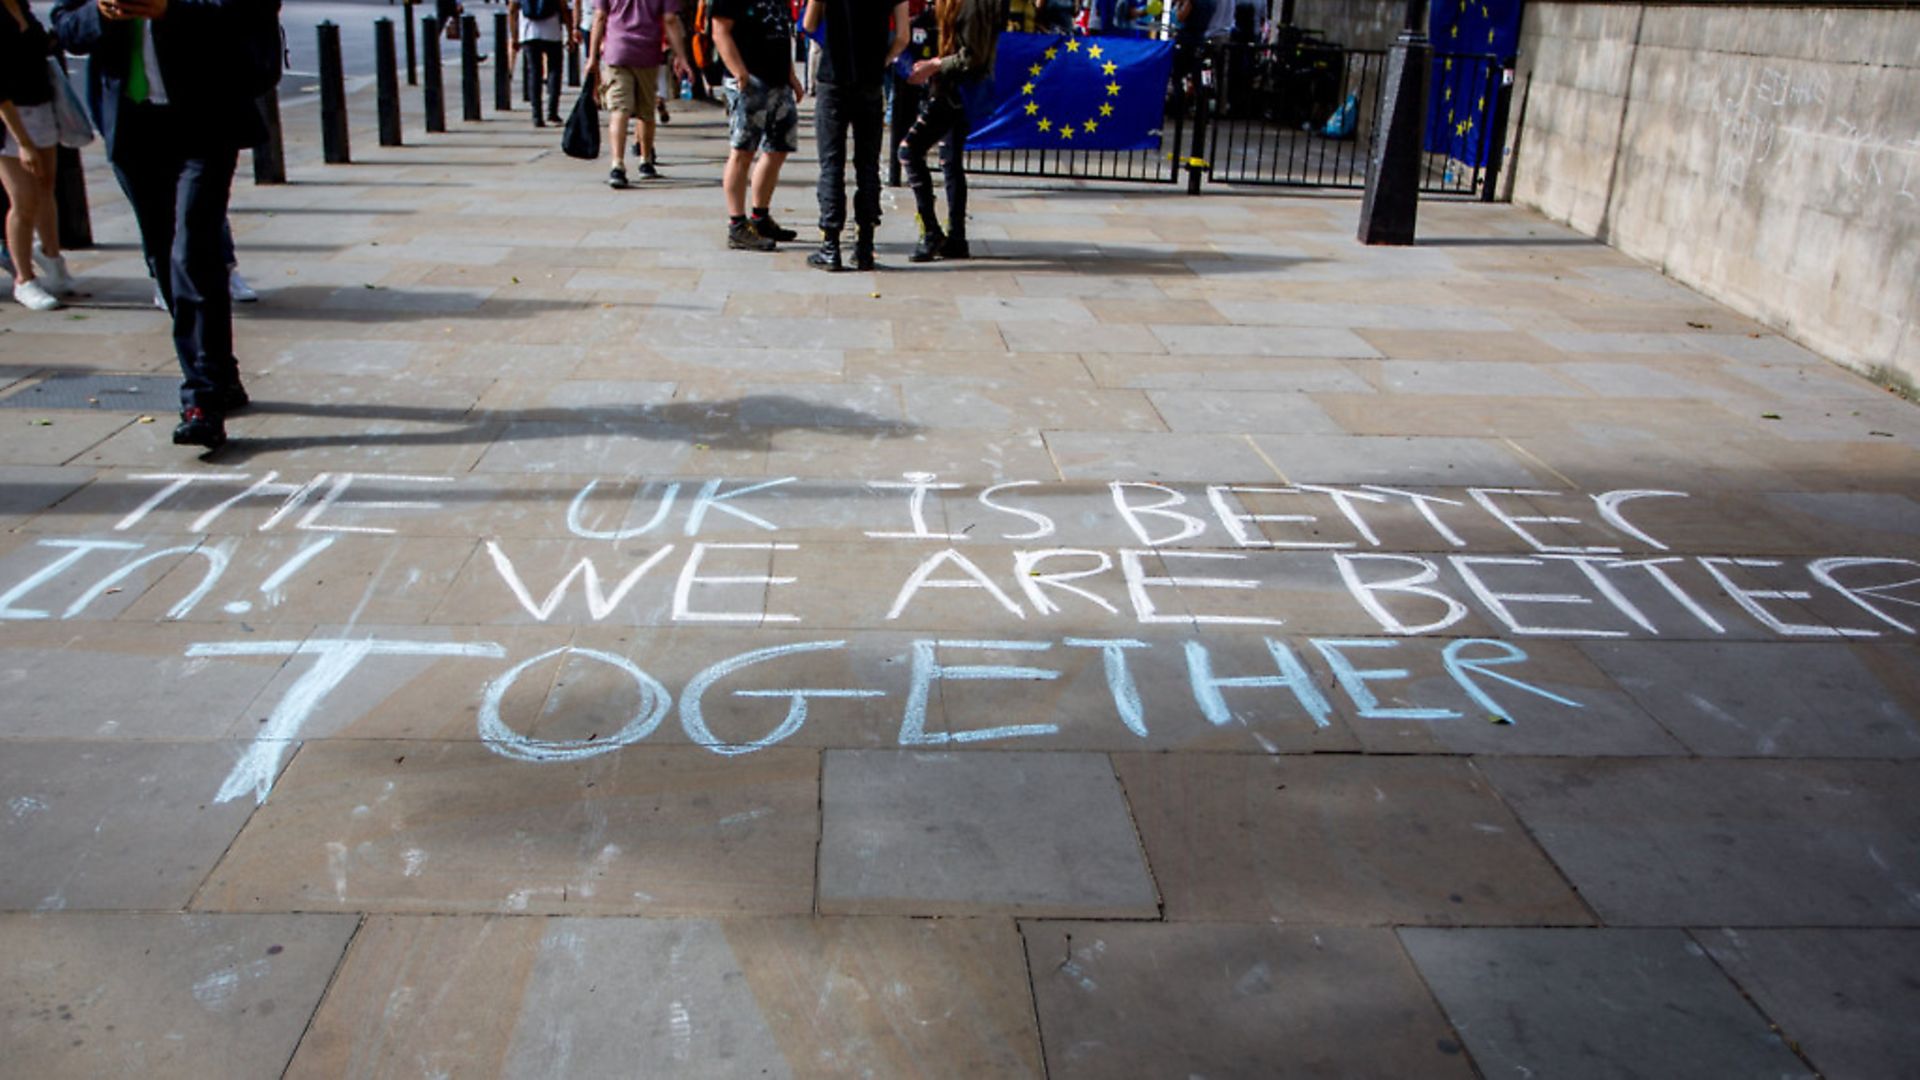 THE UK IS BETTER
In! WE ARE BETTER
TOGETHER